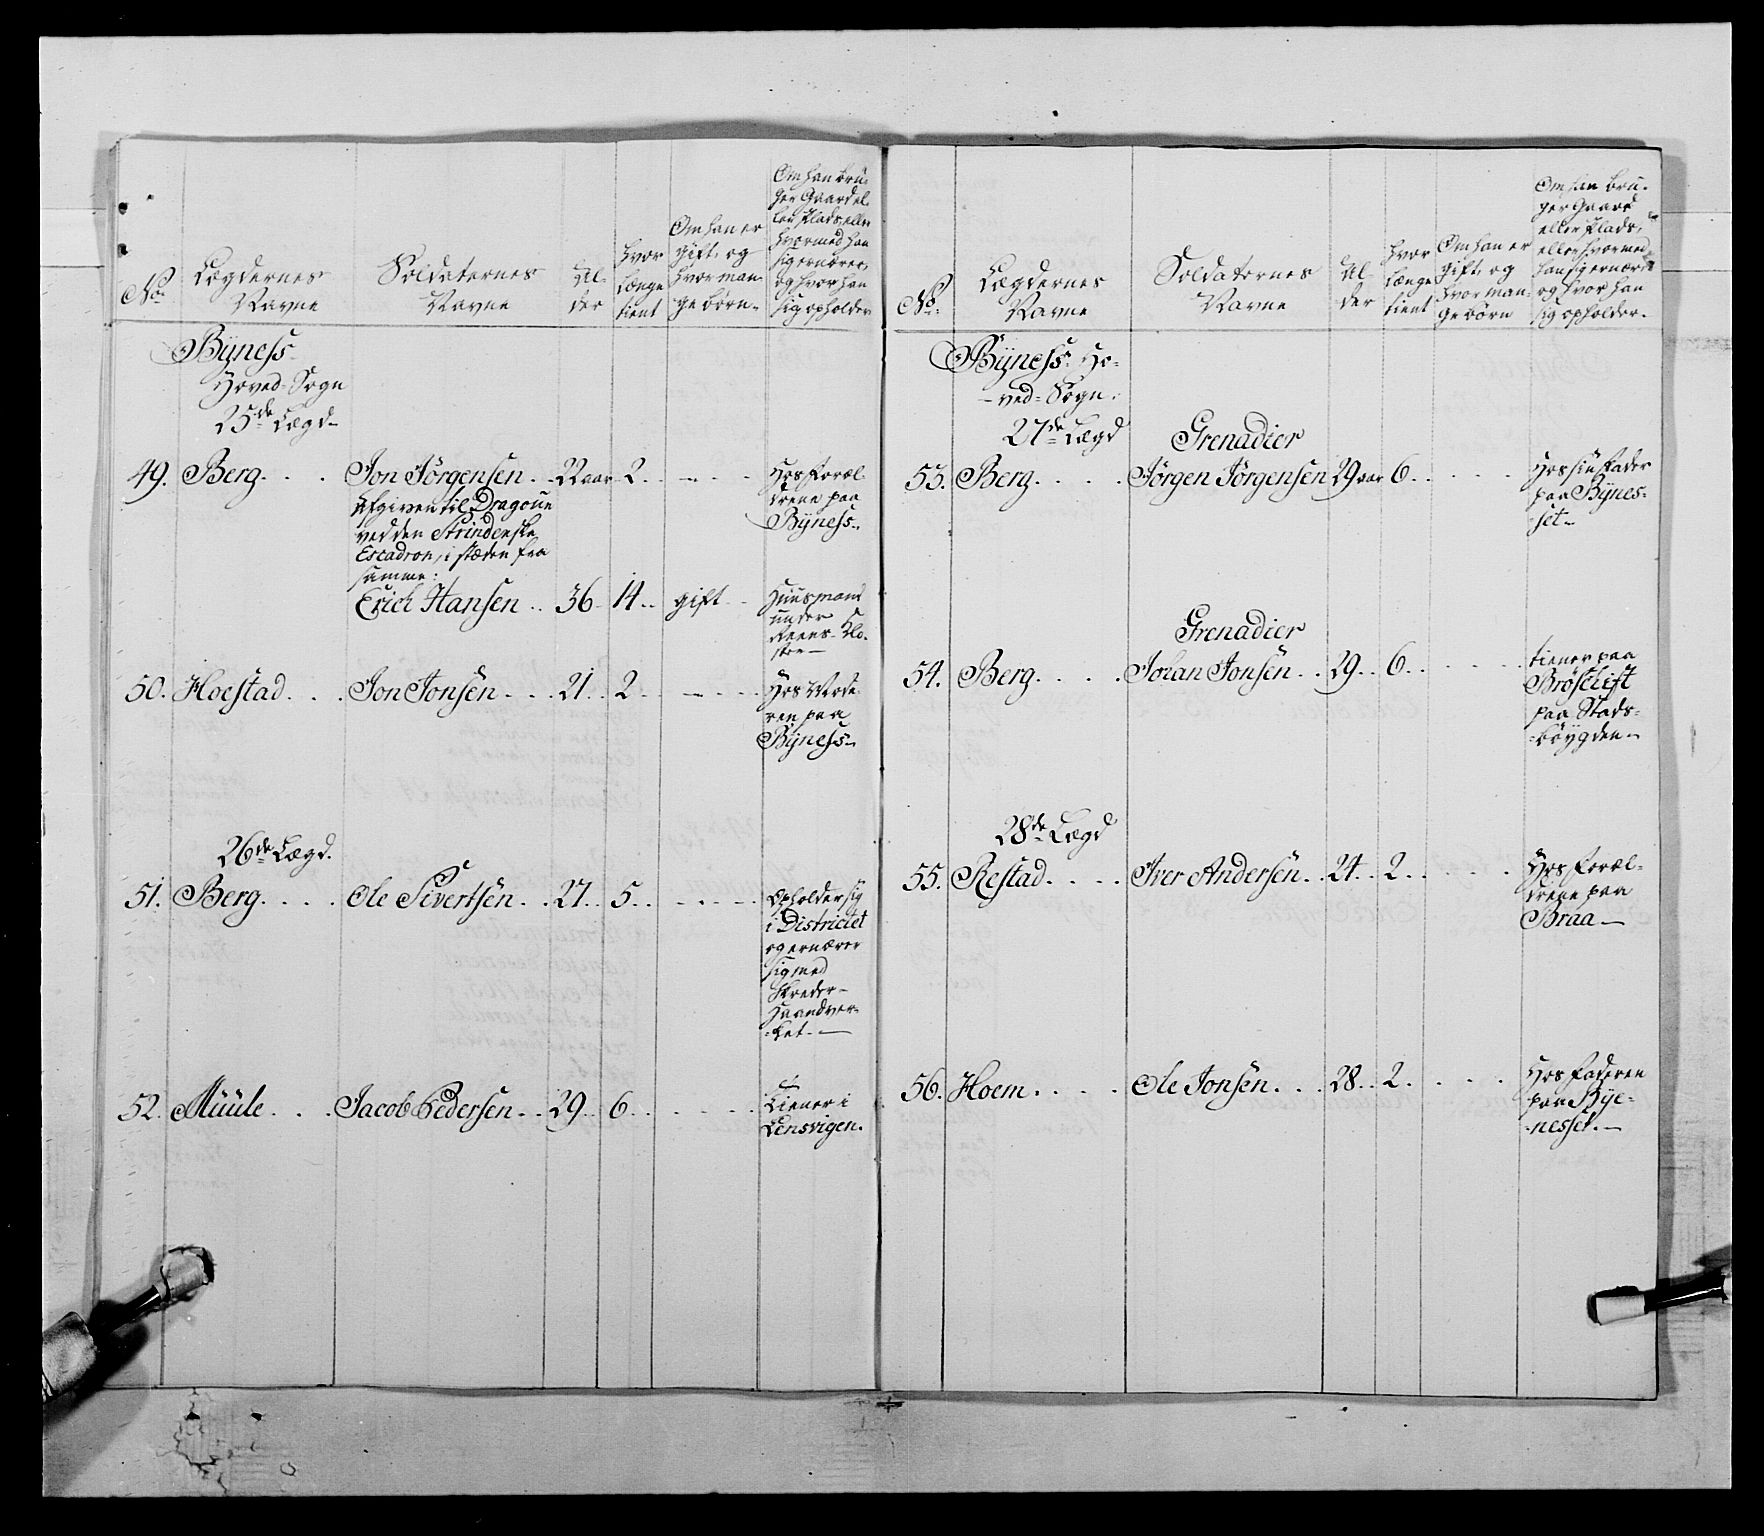 No:
Lægdernes
Navne
Soldaternes
Navne
Al-
der
hvor
længe
tient
Om han er
gift, og
hvor man-
ge børn.
Om han bru-
ger Gaard el-
ler Plads eller
hvormed han
sig ernærer,
og hvor han
sig opholder
Byness
Hoved-Sogn
25de Lægd
49. Berg. . . . Jon Jörgensen . . 22 aar 2. . - . .
Hos Foræl-
drene paa
Byness.
Afgiven til Dragoun
ved den Strindenske
Escadron, i stæden fra
samme:
Erich Hansen . . 36 14 . . gift . .
Huusmand
under
Reens-Klo-
ster
50. Hoestad . . . Jon Jonsen . . . 21 . . 2 . . - . . .
Hos Mode-
ren paa
Byness
26de Lægd.
51. Berg. . . . Ole Sivertsen . . 27 . . 5 . . . . . .
Opholder sig
i Districtet
og ernærer
sig med
Skreder-
Haandver-
ket.
52. Müüle. . . . Jacob Pedersen . . 29 . . 6 . . . . . .
Tiener i
Lensvigen.
No:
Lægdernes
Navne
Soldaternes
Navne
Al-
der
hvor
længe
tient
Om han er
gift, og
hvor man-
ge børn
Om han bru-
ger Gaard
eller Plads,
eller hvormed
han sig ernærer
og hvor han
sig opholder.
Byness. Ho-
ved-Sogn.
27de Lægd
Grenadier
53. Berg. . . . . Jörgen Jörgensen 29 aar 6. . . . . .
Hos sin Fader
paa Bynes-
set
Grenadier
54. Berg. . . . . Johan Jonsen . . 29 . . 6 . . . . . .
tiener paa
Bröschift
paa Stads-
böygden
28de Lægd
55. Restad. . . . Iver Andersen . . 24 . . 2 . . . . . .
Hos Foræl-
drene paa
Braa
56. Hoem. . . . . Ole Jonsen . . . 28 . . 2 . . . . .
Hos Faderen
paa Bye-
nesset.